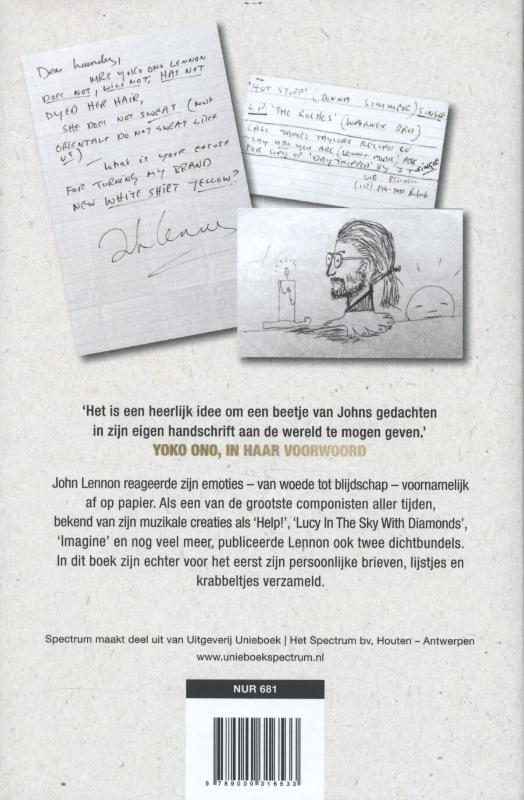 Dear Laundry,
MRS YOKO ONO LENNON
DOES NOT, WILL NOT, HAS NOT
DYED HER HAIR,
SHE DOES NOT SWEAT (MOST
ORIENTALS DO NOT SWEAT LIKE
US)
What is YOUR EXCUSE
FOR TURNING MY BRAND
NEW WHITE SHIRT YELLOW?
John Lennon
'HOT STUFF' (DONNA SUMMER) SINGLE
L.P. 'THE ROCHES' (WARNER BROS)
CALL JAMES TAYLORS RECORD CO
SAY WHO YOU ARE (LENNON MUSIC) ASK
FOR COPY OF 'DAY TRIPPER' BY J.T. SINGLE
'Het is een heerlijk idee om een beetje van Johns gedachten
in zijn eigen handschrift aan de wereld te mogen geven.'
YOKO ONO, IN HAAR VOORWOORD
John Lennon reageerde zijn emoties – van woede tot blijdschap – voornamelijk
af op papier. Als een van de grootste componisten aller tijden,
bekend van zijn muzikale creaties als 'Help!', 'Lucy In The Sky With Diamonds',
'Imagine' en nog veel meer, publiceerde Lennon ook twee dichtbundels.
In dit boek zijn echter voor het eerst zijn persoonlijke brieven, lijstjes en
krabbeltjes verzameld.
Spectrum maakt deel uit van Uitgeverij Unieboek | Het Spectrum bv, Houten – Antwerpen
www.unieboekspectrum.nl
NUR 681
9 789000 316533